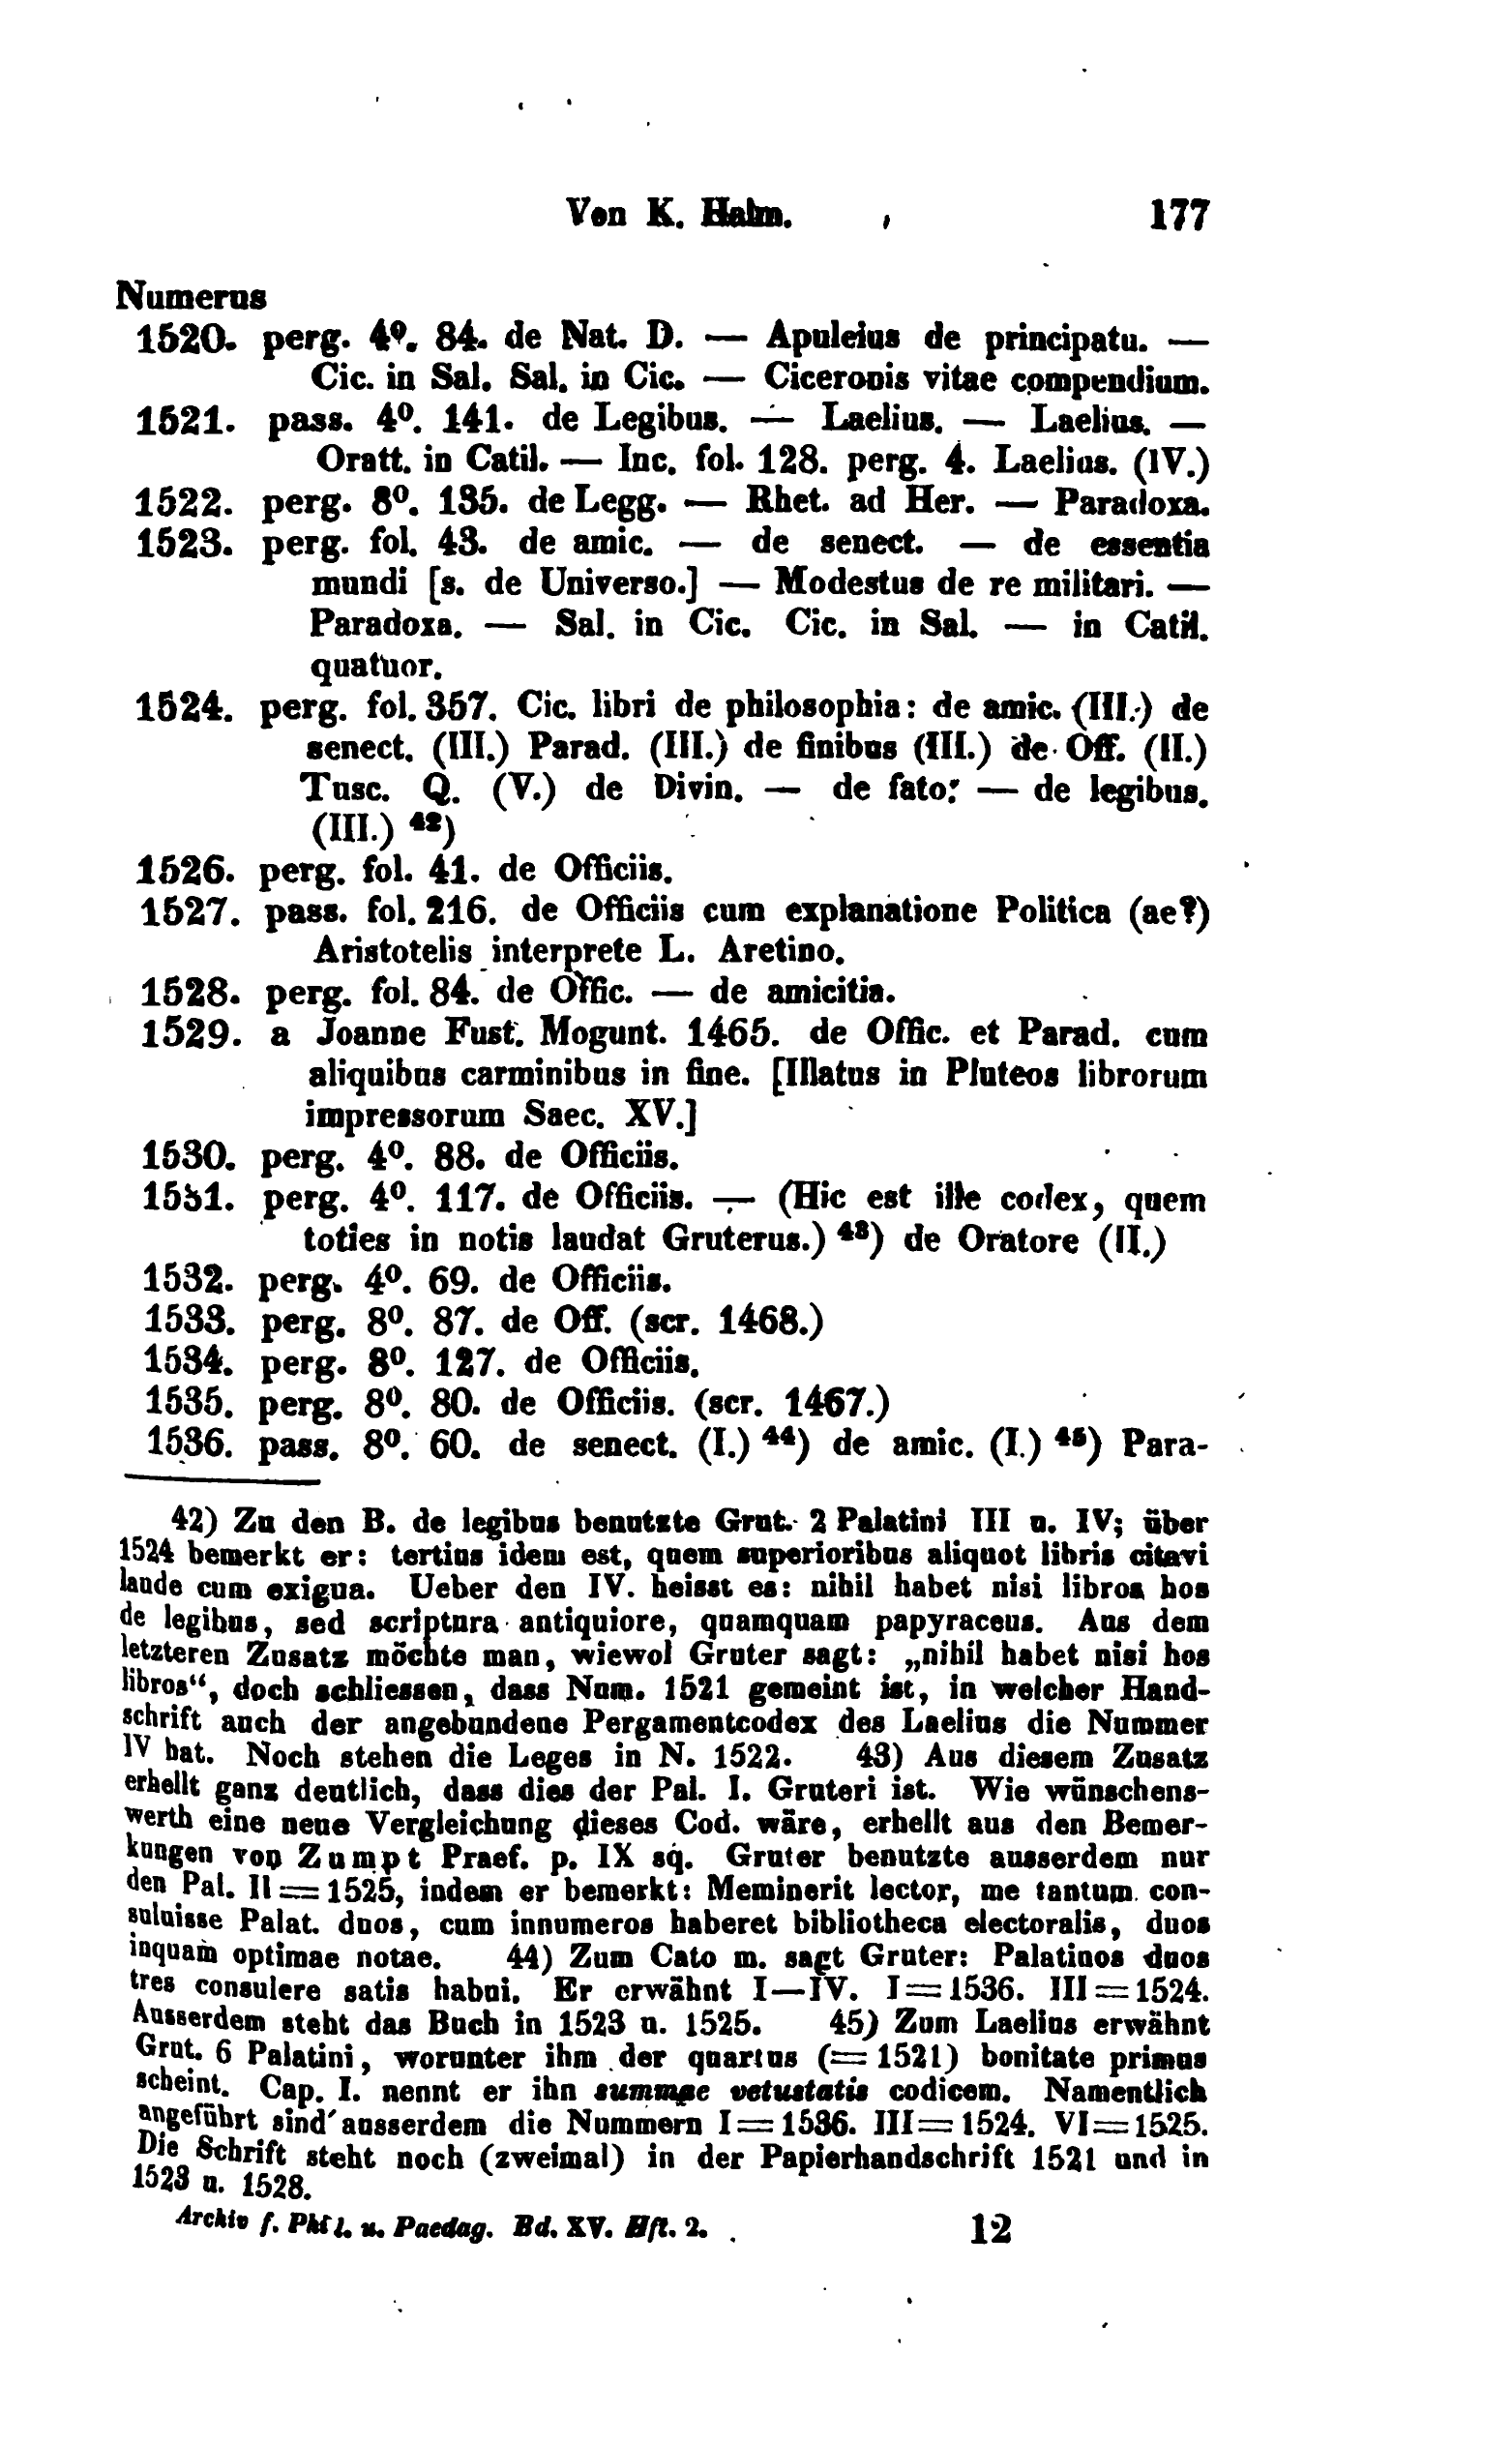 Von K. Halm. 177
Numerus
1520. perg. 4º. 84. de Nat. D. — Apuleius de principatu. —
Cic. in Sal. Sal. in Cic. — Ciceronis vitae compendium.
1521. pass. 4º. 141. de Legibus. — Laelius. — Laelius. —
Oratt. in Catil. — Inc. fol. 128. perg. 4. Laelius. (IV.)
1522. perg. 8º. 135. de Legg. — Rhet. ad Her. — Paradoxa.
1523. perg. fol. 43. de amic. — de senect. — de essentia
mundi [s. de Universo.] — Modestus de re militari. —
Paradoxa. — Sal. in Cic. Cic. in Sal. — in Catil.
quatuor.
1524. perg. fol. 357. Cic. libri de philosophia: de amic. (III.) de
senect. (III.) Parad. (III.) de finibus (III.) de Off. (II.)
Tusc. Q. (V.) de Divin. — de fato: — de legibus.
(III.) 42)
1526. perg. fol. 41. de Officiis.
1527. pass. fol. 216. de Officiis cum explanatione Politica (ae?)
Aristotelis interprete L. Aretino.
1528. perg. fol. 84. de Offic. — de amicitia.
1529. a Joanne Fust. Mogunt. 1465. de Offic. et Parad. cum
aliquibus carminibus in fine. [Illatus in Pluteos librorum
impressorum Saec. XV.]
1530. perg. 4º. 88. de Officiis.
1531. perg. 4º. 117. de Officiis. — (Hic est ille codex, quem
toties in notis laudat Gruterus.) 43) de Oratore (II.)
1532. perg. 4º. 69. de Officiis.
1533. perg. 8º. 87. de Off. (scr. 1468.)
1534. perg. 8º. 127. de Officiis.
1535. perg. 8º. 80. de Officiis. (scr. 1467.)
1536. pass. 8º. 60. de senect. (I.) 44) de amic. (I.) 45) Para-
42) Zu den B. de legibus benutzte Grut. 2 Palatini III u. IV; über
1524 bemerkt er: tertius idem est, quem superioribus aliquot libris citavi
laude cum exigua. Ueber den IV. heisst es: nihil habet nisi libros hos
de legibus, sed scriptura antiquiore, quamquam papyraceus. Aus dem
letzteren Zusatz möchte man, wiewol Gruter sagt: „nihil habet nisi hos
libros“, doch schliessen, dass Num. 1521 gemeint ist, in welcher Hand-
schrift auch der angebundene Pergamentcodex des Laelius die Nummer
IV hat. Noch stehen die Leges in N. 1522. 43) Aus diesem Zusatz
erhellt ganz deutlich, dass dies der Pal. I. Gruteri ist. Wie wünschens-
werth eine neue Vergleichung dieses Cod. wäre, erhellt aus den Bemer-
kungen von Zumpt Praef. p. IX sq. Gruter benutzte ausserdem nur
den Pal. II = 1525, indem er bemerkt: Meminerit lector, me tantum con-
suluisse Palat. duos, cum innumeros haberet bibliotheca electoralis, duos
inquam optimae notae. 44) Zum Cato m. sagt Gruter: Palatinos duos
tres consulere satis habui. Er erwähnt I—IV. I = 1536. III = 1524.
Ausserdem steht das Buch in 1523 u. 1525. 45) Zum Laelius erwähnt
Grut. 6 Palatini, worunter ihm der quartus (= 1521) bonitate primus
scheint. Cap. I. nennt er ihn summae vetustatis codicem. Namentlich
angeführt sind ausserdem die Nummern I = 1536. III = 1524. VI = 1525.
Die Schrift steht noch (zweimal) in der Papierhandschrift 1521 und in
1523 u. 1528.
Archiv f. Phil. u. Paedag. Bd. XV. Hft. 2. 12